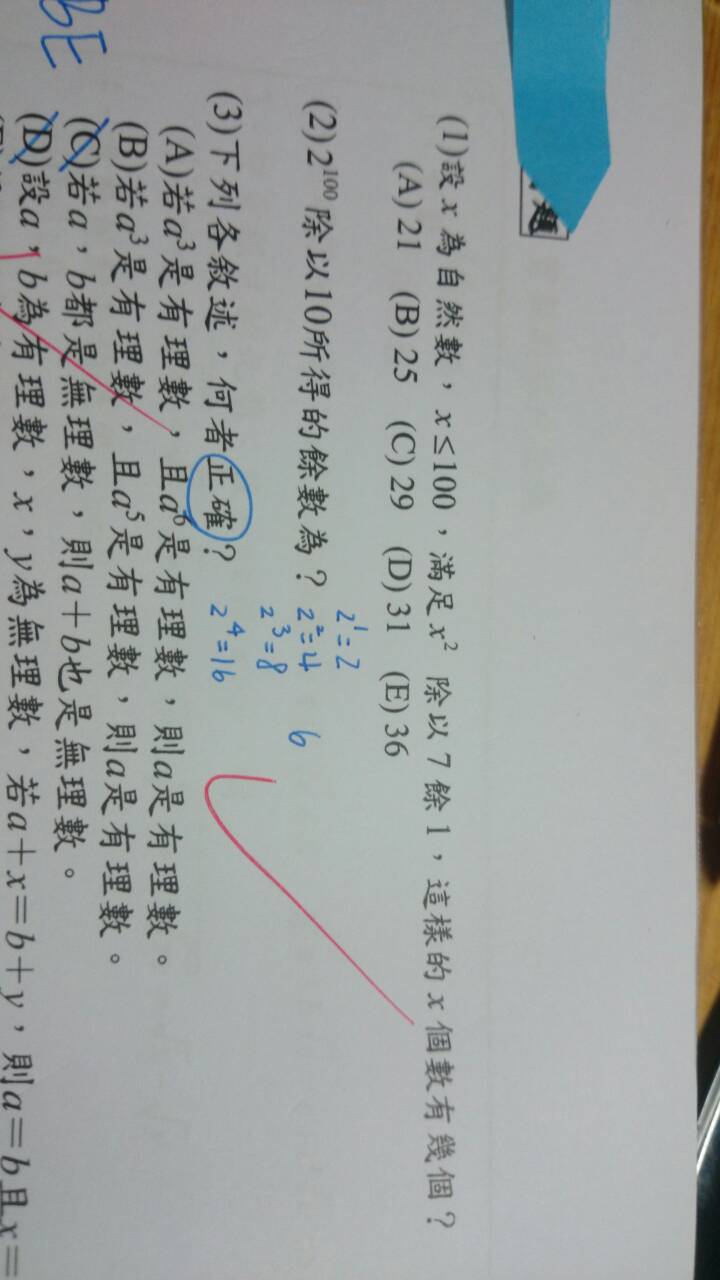 題
(1)設x為自然數，x≤100，滿足x² 除以7餘1，這樣的x個數有幾個？
(A)21 (B)25 (C)29 (D)31 (E)36
(2)2¹⁰⁰除以10所得的餘數為？
2¹=2
2²=4
2³=8
2⁴=16
6
(3)下列各敘述，何者正確？
(A)若a³是有理數，且a⁶是有理數，則a是有理數。
(B)若a³是有理數，且a⁵是有理數，則a是有理數。
(C)若a，b都是無理數，則a＋b也是無理數。
(D)設a，b為有理數，x，y為無理數，若a＋x＝b＋y，則a＝b且x＝
BE